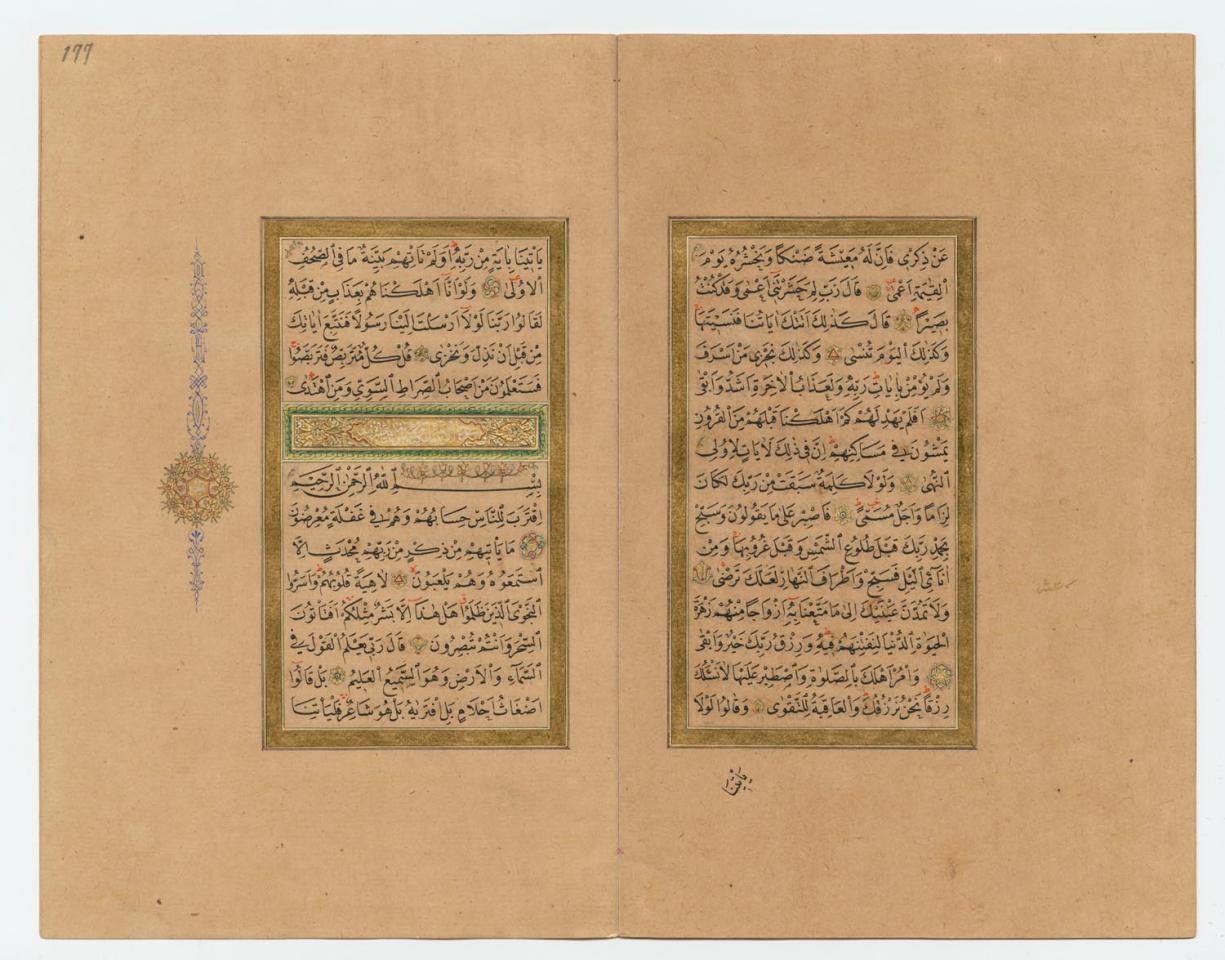 عَنْ ذِكْرٖى فَاِنَّ لَهُ مَعٖيشَةً ضَنْكًا وَنَحْشُرُهُ يَوْمَ
الْقِيٰمَةِ اَعْمٰى قَالَ رَبِّ لِمَ حَشَرْتَنٖى اَعْمٰى وَقَدْ كُنْتُ
بَصٖيرًا قَالَ كَذٰلِكَ اَتَتْكَ اٰيَاتُنَا فَنَسٖيتَهَا
وَكَذٰلِكَ الْيَوْمَ تُنْسٰى وَكَذٰلِكَ نَجْزٖى مَنْ اَسْرَفَ
وَلَمْ يُؤْمِنْ بِاٰيَاتِ رَبِّهٖ وَلَعَذَابُ الْاٰخِرَةِ اَشَدُّ وَاَبْقٰى
اَفَلَمْ يَهْدِ لَهُمْ كَمْ اَهْلَكْنَا قَبْلَهُمْ مِنَ الْقُرُونِ
يَمْشُونَ فٖى مَسَاكِنِهِمْ اِنَّ فٖى ذٰلِكَ لَاٰيَاتٍ لِاُولِى
النُّهٰى وَلَوْلَا كَلِمَةٌ سَبَقَتْ مِنْ رَبِّكَ لَكَانَ
لِزَامًا وَاَجَلٌ مُسَمًّى فَاصْبِرْ عَلٰى مَا يَقُولُونَ وَسَبِّحْ
بِحَمْدِ رَبِّكَ قَبْلَ طُلُوعِ الشَّمْسِ وَقَبْلَ غُرُوبِهَا وَمِنْ
اٰنَائِ الَّيْلِ فَسَبِّحْ وَاَطْرَافَ النَّهَارِ لَعَلَّكَ تَرْضٰى
وَلَا تَمُدَّنَّ عَيْنَيْكَ اِلٰى مَا مَتَّعْنَا بِهٖ اَزْوَاجًا مِنْهُمْ زَهْرَةَ
الْحَيٰوةِ الدُّنْيَا لِنَفْتِنَهُمْ فٖيهِ وَرِزْقُ رَبِّكَ خَيْرٌ وَاَبْقٰى
وَاْمُرْ اَهْلَكَ بِالصَّلٰوةِ وَاصْطَبِرْ عَلَيْهَا لَا نَسْئَلُكَ
رِزْقًا نَحْنُ نَرْزُقُكَ وَالْعَاقِبَةُ لِلتَّقْوٰى وَقَالُوا لَوْلَا
يَاْتٖينَا
١٧٧
يَاْتٖينَا بِاٰيَةٍ مِنْ رَبِّهٖ اَوَلَمْ تَاْتِهِمْ بَيِّنَةُ مَا فِى الصُّحُفِ
الْاُولٰى وَلَوْ اَنَّا اَهْلَكْنَاهُمْ بِعَذَابٍ مِنْ قَبْلِهٖ
لَقَالُوا رَبَّنَا لَوْلَا اَرْسَلْتَ اِلَيْنَا رَسُولًا فَنَتَّبِعَ اٰيَاتِكَ
مِنْ قَبْلِ اَنْ نَذِلَّ وَنَخْزٰى قُلْ كُلٌّ مُتَرَبِّصٌ فَتَرَبَّصُوا
فَسَتَعْلَمُونَ مَنْ اَصْحَابُ الصِّرَاطِ السَّوِىِّ وَمَنِ اهْتَدٰى
بِسْمِ اللّٰهِ الرَّحْمٰنِ الرَّحٖيمِ
اِقْتَرَبَ لِلنَّاسِ حِسَابُهُمْ وَهُمْ فٖى غَفْلَةٍ مُعْرِضُونَ
مَا يَاْتٖيهِمْ مِنْ ذِكْرٍ مِنْ رَبِّهِمْ مُحْدَثٍ اِلَّا
اسْتَمَعُوهُ وَهُمْ يَلْعَبُونَ لَاهِيَةً قُلُوبُهُمْ وَاَسَرُّوا
النَّجْوَى الَّذٖينَ ظَلَمُوا هَلْ هٰذَا اِلَّا بَشَرٌ مِثْلُكُمْ اَفَتَاْتُونَ
السِّحْرَ وَاَنْتُمْ تُبْصِرُونَ قَالَ رَبّٖى يَعْلَمُ الْقَوْلَ فِى
السَّمَاءِ وَالْاَرْضِ وَهُوَ السَّمٖيعُ الْعَلٖيمُ بَلْ قَالُوا
اَضْغَاثُ اَحْلَامٍ بَلِ افْتَرٰيهُ بَلْ هُوَ شَاعِرٌ فَلْيَاْتِنَا